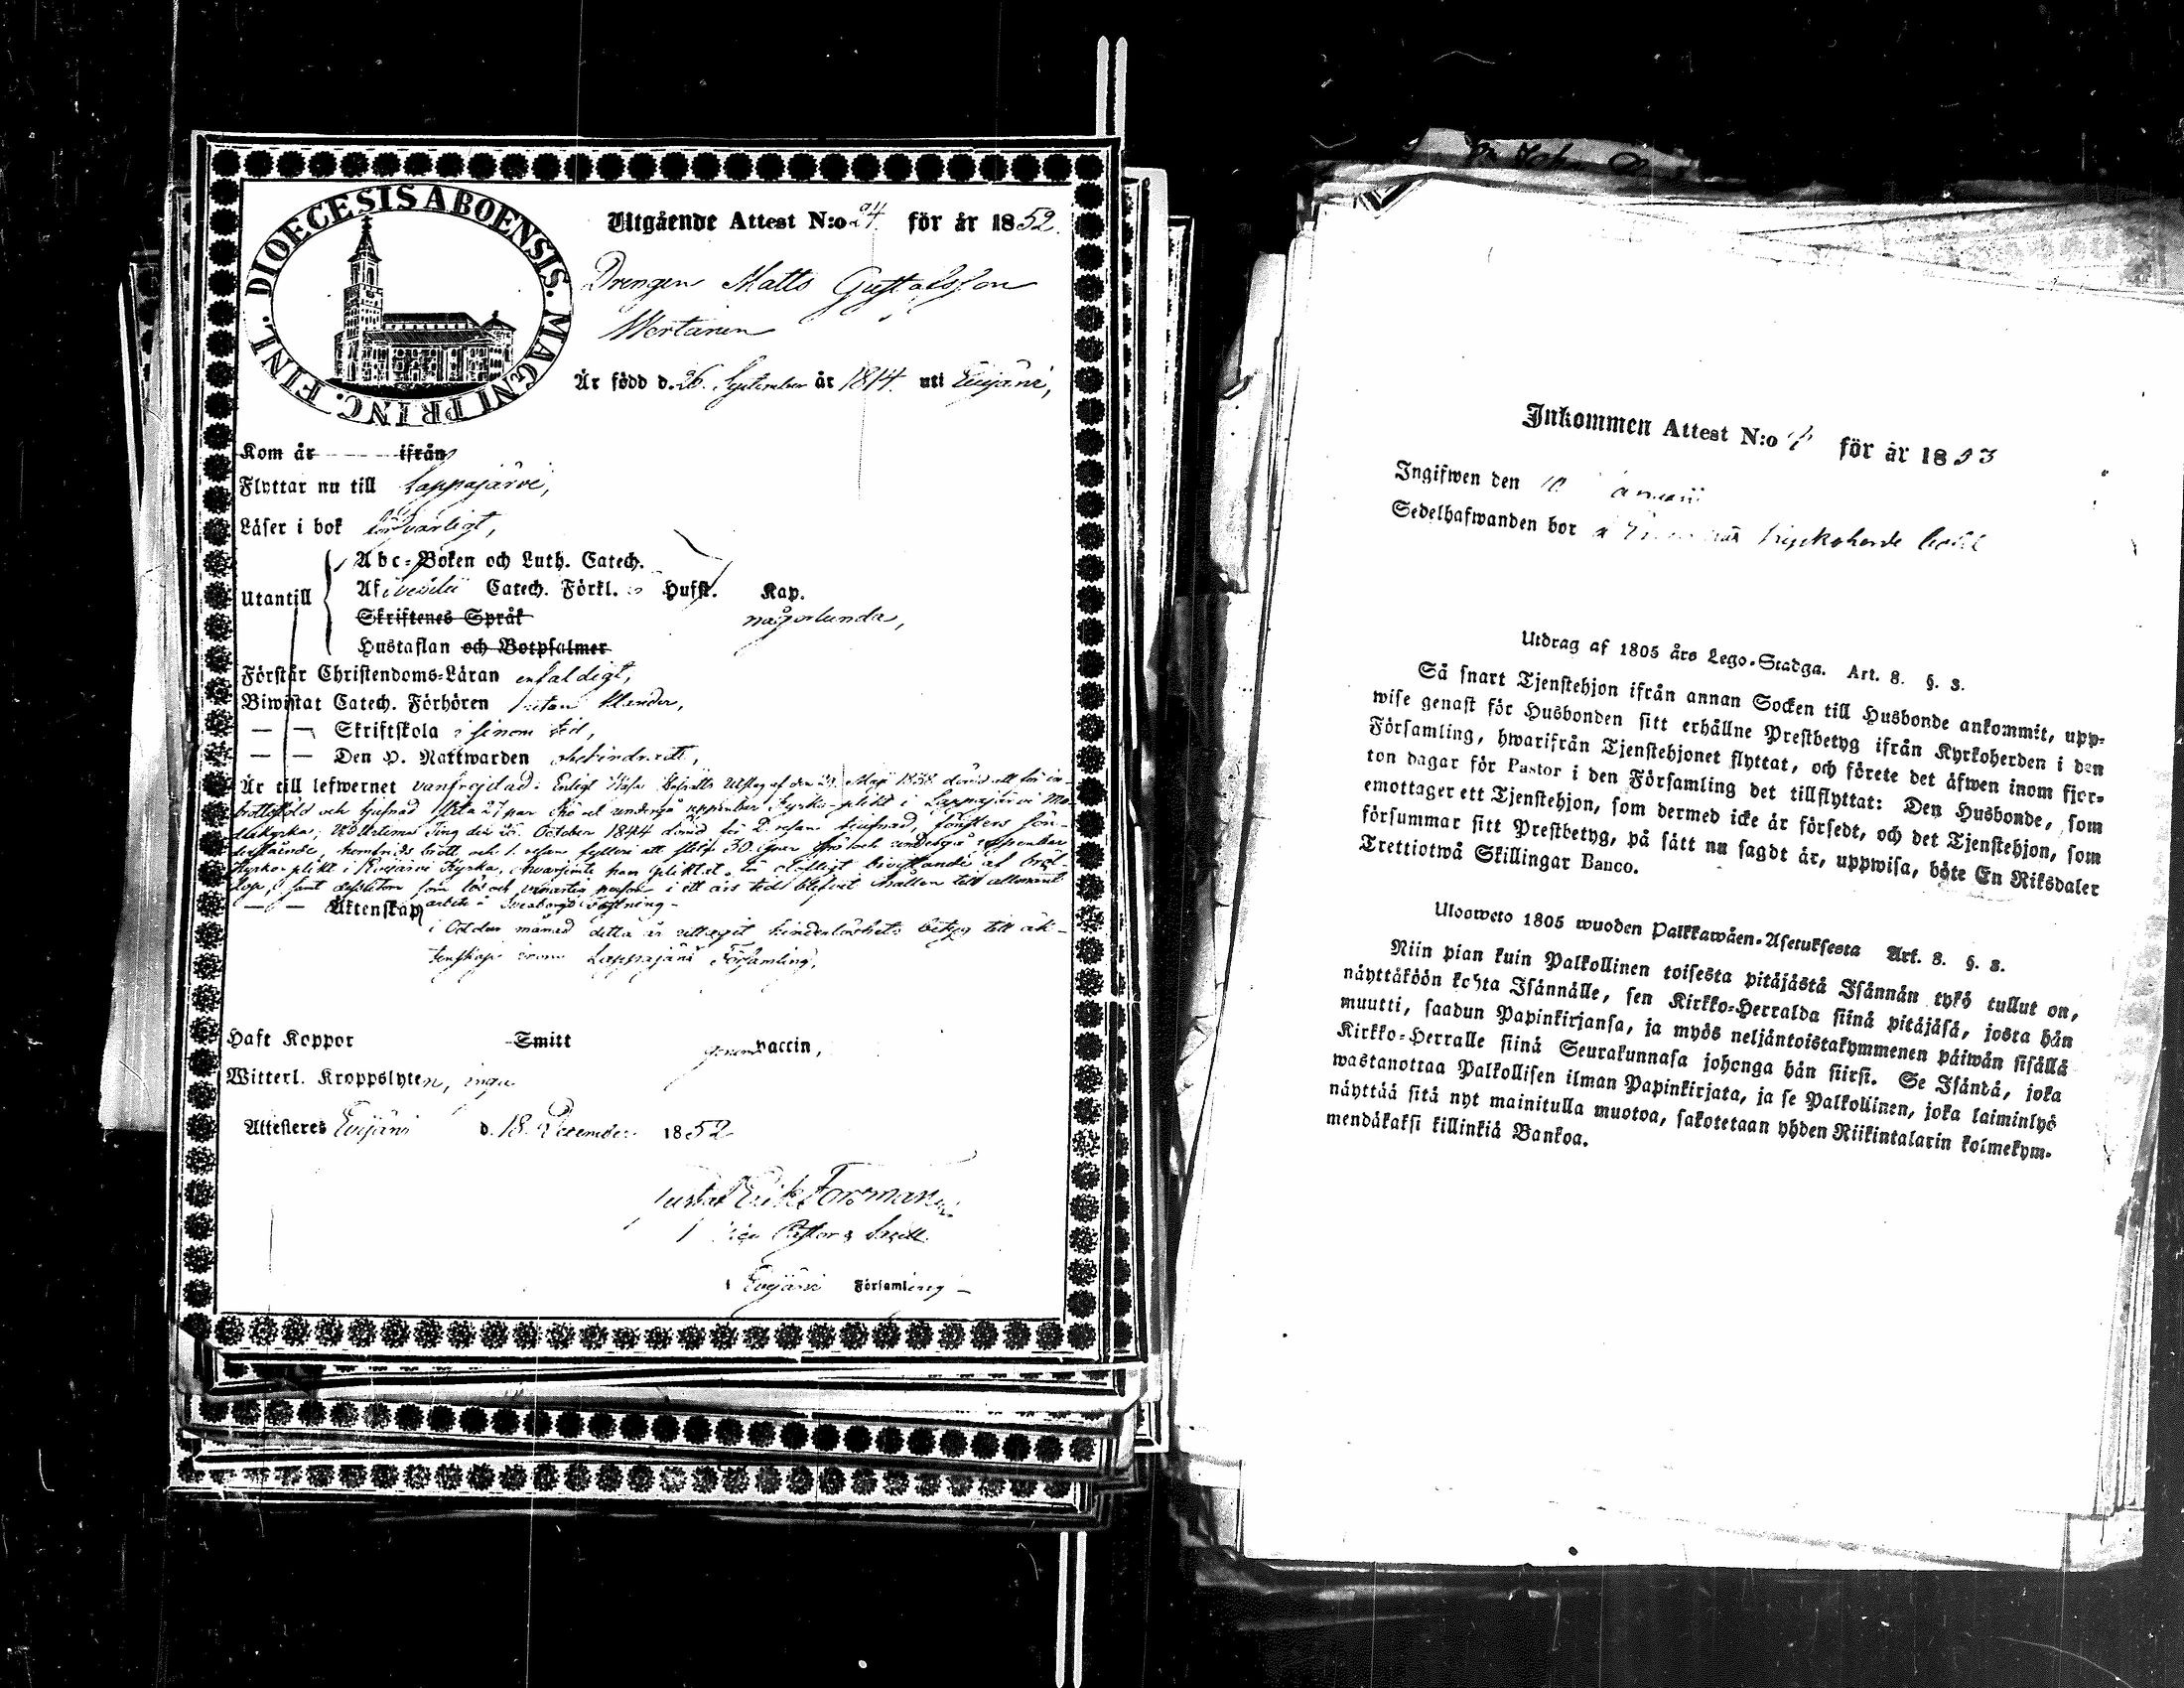 DIOECESIS ABOENSIS. MAGNI PRINC. FINL.
Utgående Attest N:o 24 för år 1852.
Drengen Matts Gustafsson
Wertanen
Är född d. 26. September år 1814. uti Evijärvi,
Kom år ifrån
Flyttar nu till Lappajärvi,
Läser i bok försvarligt,
Utantill
Abc-Boken och Luth. Catech.
Af Svebilii Catech. Förkl. Hufst. Kap.
Skriftenes Språk någorlunda,
Hustaflan och Botpsalmer
Förstår Christendoms-Läran enfaldigt,
Biwistat Catech. Förhören utan klander,
— — Skriftskola i sinom tid,
— — Den H. Nattwarden obehindradt,
Är till lefwernet vanfrejdad: Enligt Wasa Hofrätts Utslag af den Maji 1838 dömd att för in-
brottsstöld och tjufnad slita 27 par spö och undergå uppenbar kyrko-plikt i Lappajärvi Mo-
derkyrka; vid Ting den October 1844 dömd för 2. resan tjufnad, fönsters sön-
derslående, hemfrids brott och 1. resan fylleri att slita 30. par spö och undergå uppenbar
kyrko plikt i Evijärvi Kyrka, hvarjemte han pliktat för olofligt bivistande af bröl-
lop, samt dessutom som lös och vanartig person i ett års tid blifvit hållen till allmänt
arbete å Sveaborgs fästning —
— — Äktenskap
i October månad detta år uttagit hinderlöshets betyg till äk-
tenskap inom Lappajärvi Församling.
Haft Koppor Smitt genom vaccin,
Witterl. Kroppslyten, inga
Attesteres Evijärvi d. 18. December 1852
Gustaf Erik Forsman
Vice Pastor
i Evijärvi Församling —
Inkommen Attest N:o för år 1853
Ingifwen den 10 Januarii
Sedelhafwanden bor Kyrkoherde
Utdrag af 1805 års Lego-Stadga. Art. 8. §. 3.
Så snart Tjenstehjon ifrån annan Socken till Husbonde ankommit, upp-
wise genast för Husbonden sitt erhållne Prestbetyg ifrån Kyrkoherden i den
Församling, hwarifrån Tjenstehjonet flyttat, och förete det äfwen inom fjor-
ton dagar för Pastor i den Församling det tillflyttat: Den Husbonde, som
emottager ett Tjenstehjon, som dermed icke är försedt, och det Tjenstehjon, som
försummar sitt Prestbetyg, på sätt nu sagdt är, uppwisa, böte En Riksdaler
Trettiotwå Skillingar Banco.
Ulosweto 1805 wuoden Palkkawäen-Asetuksesta Art. 8. §. 3.
Niin pian kuin Palkollinen toisesta pitäjästä Isännän tykö tullut on,
näyttäköön kohta Isännälle, sen Kirkko-Herralda siinä pitäjäsä, josta hän
muutti, saadun Papinkirjansa, ja myös neljäntoistakymmenen päiwän sisällä
Kirkko-Herralle siinä Seurakunnasa johonga hän siirsi. Se Isändä, joka
wastanottaa Palkollisen ilman Papinkirjata, ja se Palkollinen, joka laiminlyö
näyttää sitä nyt mainitulla muotoa, sakotetaan yhden Riikintalarin kolmekym-
mendäkaksi killinkiä Bankoa.